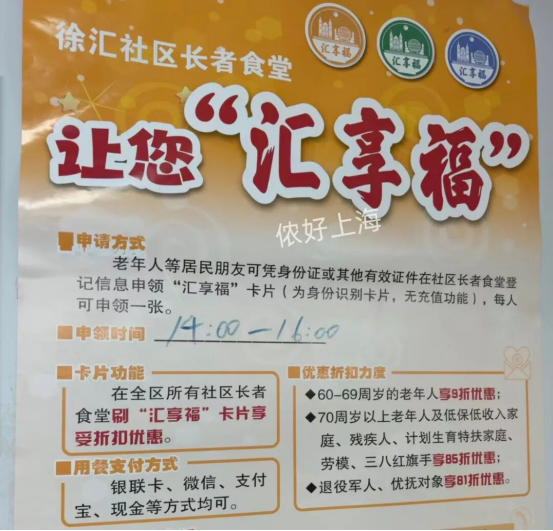 徐汇社区长者食堂
汇享福
汇享福
汇享福
让您“汇享福”
侬好上海
申请方式
老年人等居民朋友可凭身份证或其他有效证件在社区长者食堂登
记信息申领“汇享福”卡片（为身份识别卡片，无充值功能），每人
可申领一张。
申领时间 14:00-16:00
卡片功能
在全区所有社区长者
食堂刷“汇享福”卡片享
受折扣优惠。
用餐支付方式
银联卡、微信、支付
宝、现金等方式均可。
优惠折扣力度
◆60-69周岁的老年人享9折优惠；
◆70周岁以上老年人及低保低收入家
庭、残疾人、计划生育特扶家庭、
劳模、三八红旗手享85折优惠；
◆退役军人、优抚对象享81折优惠。